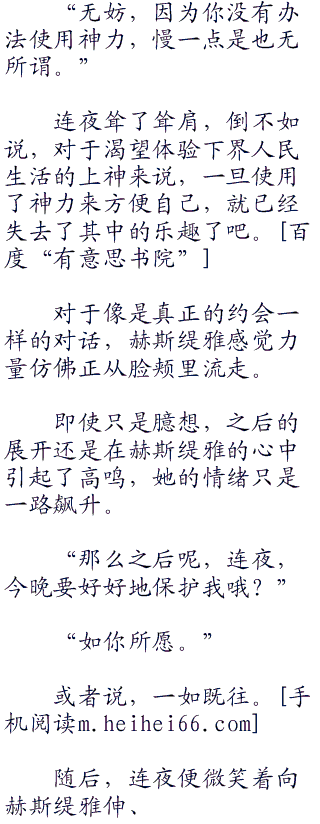 “无妨，因为你没有办
法使用神力，慢一点是也无
所谓。”
连夜耸了耸肩，倒不如
说，对于渴望体验下界人民
生活的上神来说，一旦使用
了神力来方便自己，就已经
失去了其中的乐趣了吧。[百
度“有意思书院”]
对于像是真正的约会一
样的对话，赫斯缇雅感觉力
量仿佛正从脸颊里流走。
即使只是臆想，之后的
展开还是在赫斯缇雅的心中
引起了高鸣，她的情绪只是
一路飙升。
“那么之后呢，连夜，
今晚要好好地保护我哦？”
“如你所愿。”
或者说，一如既往。[手
机阅读m.heihei66.com]
随后，连夜便微笑着向
赫斯缇雅伸、